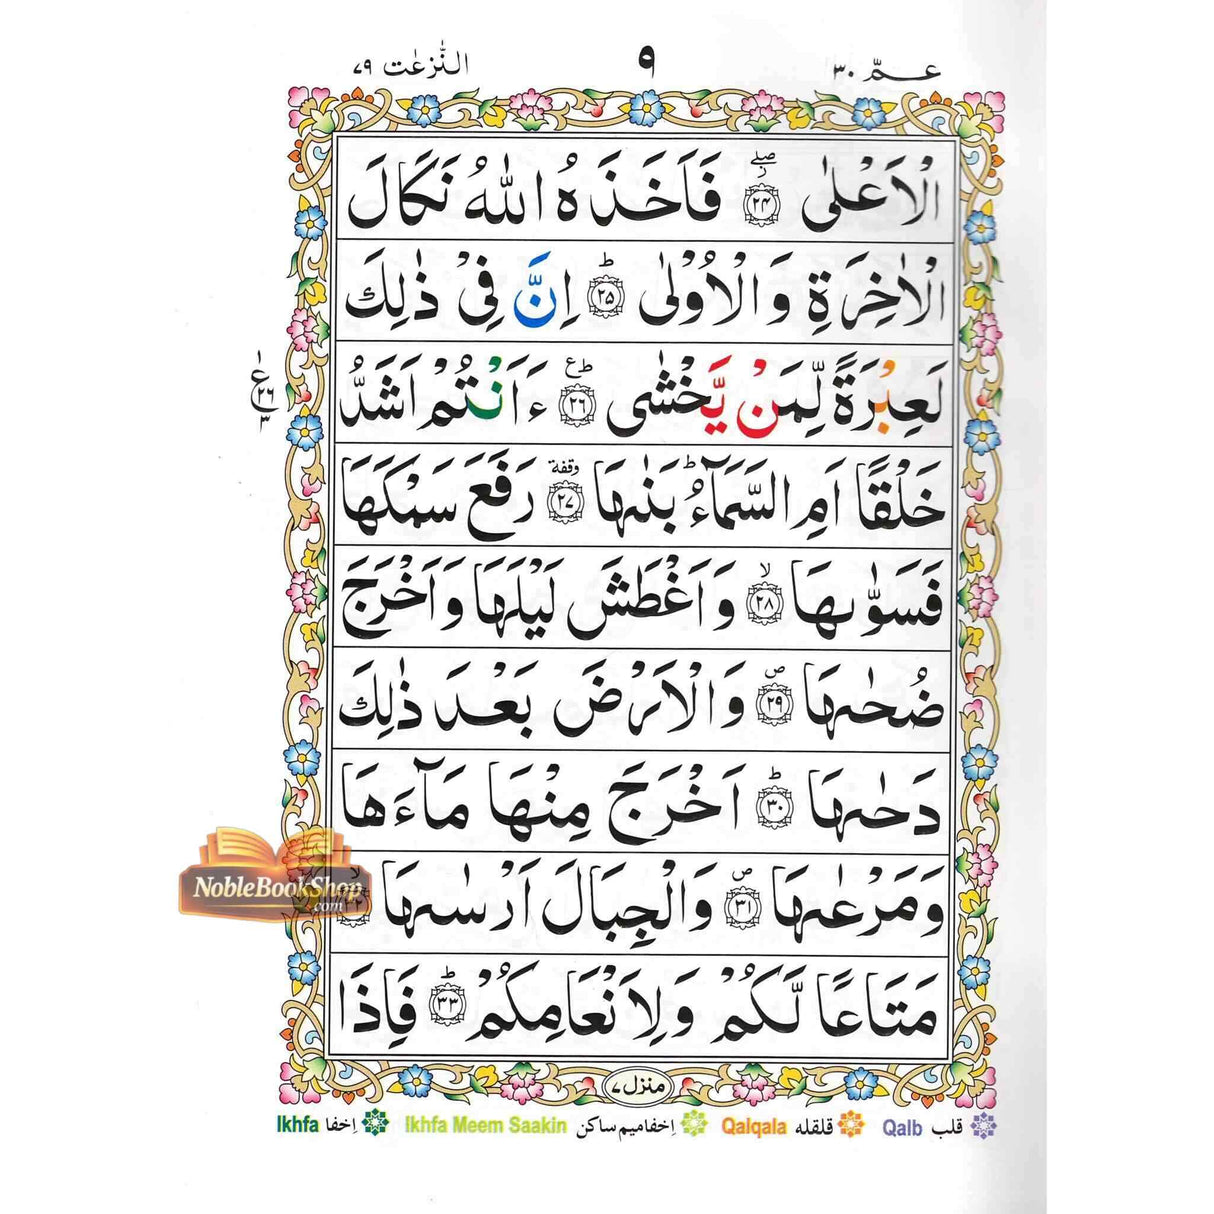 عـمّ ٣٠ ٩ النّٰزعٰت ٧٩
الْاَعْلٰى ۖ ٢٤ فَاَخَذَهُ اللّٰهُ نَكَالَ
الْاٰخِرَةِ وَالْاُوْلٰى ؕ ٢٥ اِنَّ فِیْ ذٰلِكَ
لَعِبْرَةً لِّمَنْ یَّخْشٰى ؕ ع ٢٦ ءَاَنْتُمْ اَشَدُّ
ع ٢٦ ٣
خَلْقًا اَمِ السَّمَآءُ ؕ بَنٰىهَا وقفة ٢٧ رَفَعَ سَمْكَهَا
فَسَوّٰىهَا ۙ ٢٨ وَاَغْطَشَ لَیْلَهَا وَاَخْرَجَ
ضُحٰىهَا ص ٢٩ وَالْاَرْضَ بَعْدَ ذٰلِكَ
دَحٰىهَا ؕ ٣٠ اَخْرَجَ مِنْهَا مَآءَهَا
وَمَرْعٰىهَا ص ٣١ وَالْجِبَالَ اَرْسٰىهَا ۙ ٣٢
NobleBookShop
.com
مَتَاعًا لَّكُمْ وَلِاَنْعَامِكُمْ ؕ ٣٣ فَاِذَا
منزل ٧
قلب Qalb قلقله Qalqala اِخفا میم ساكن Ikhfa Meem Saakin اِخفا Ikhfa